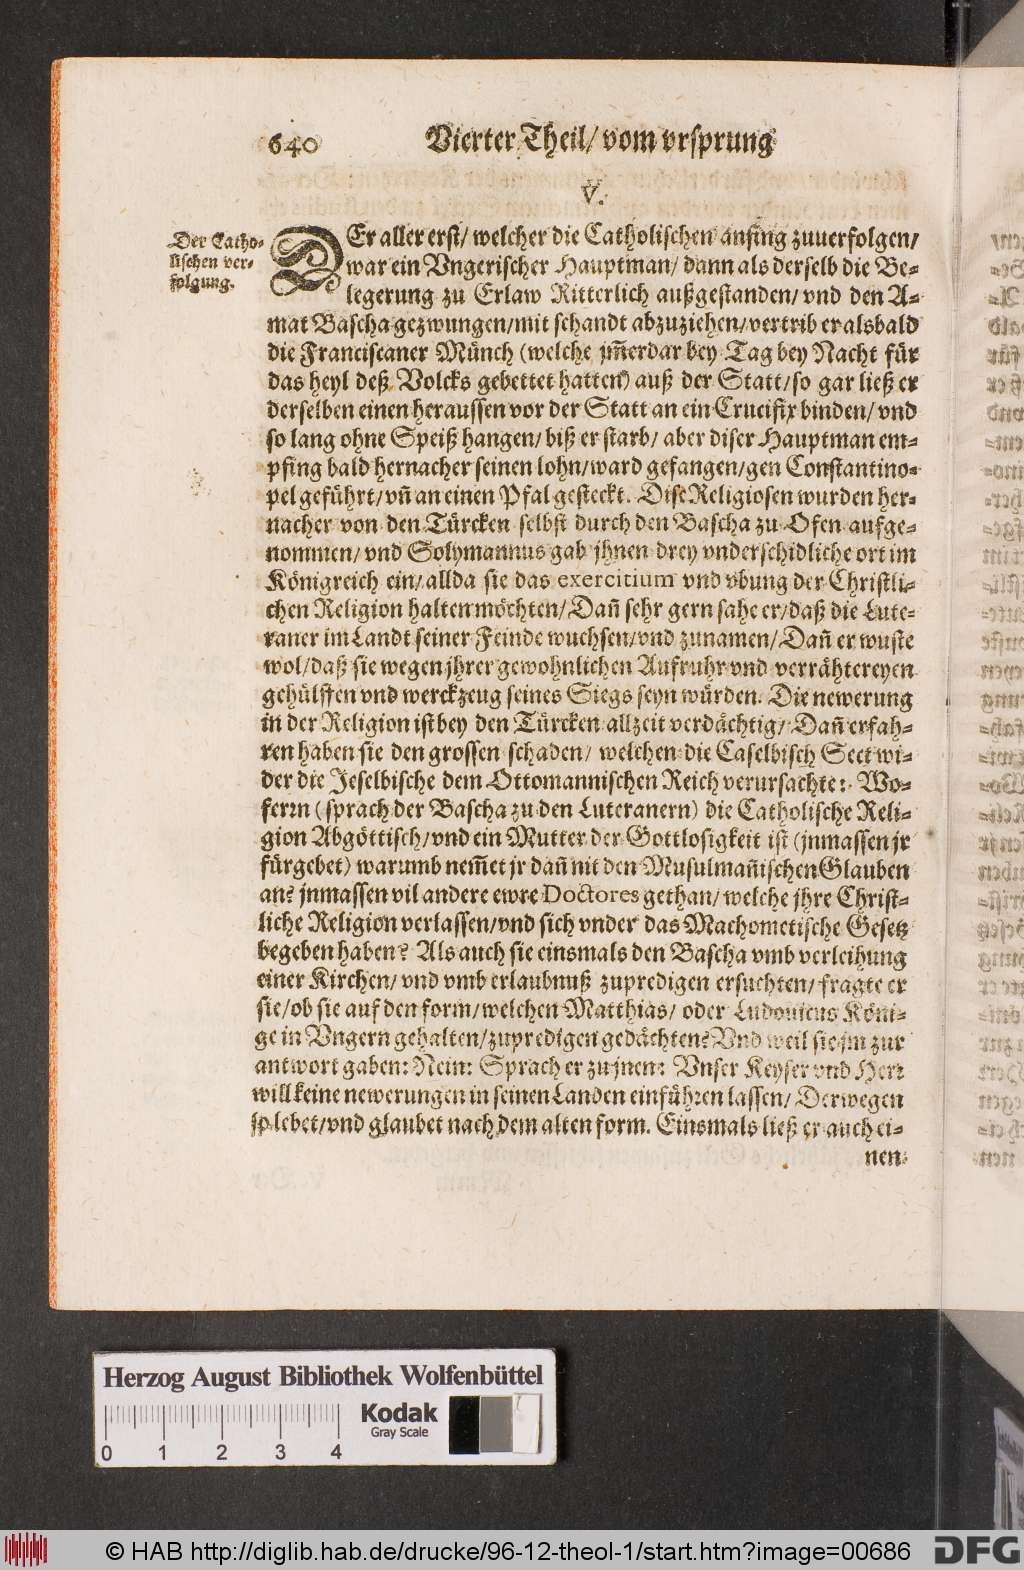 640 Vierter Theil/ vom vrsprung
V.
Der Catho-
lischen ver-
folgung.
DEr aller erst/ welcher die Catholischen anfing zuuerfolgen/
war ein Vngerischer Hauptman/ dann als derselb die Be-
legerung zu Erlaw Ritterlich außgestanden/ vnd den A-
mat Bascha gezwungen/ mit schandt abzuziehen/ vertrib er alsbald
die Franciscaner Münch (welche jm̃erdar bey Tag bey Nacht für
das heyl deß Volcks gebettet hatten) auß der Statt/ so gar ließ er
derselben einen heraussen vor der Statt an ein Crucifix binden/ vnd
so lang ohne Speiß hangen/ biß er starb/ aber diser Hauptman em-
pfing bald hernacher seinen lohn/ ward gefangen/ gen Constantino-
pel geführt/ vñ an einen Pfal gesteckt. Dise Religiosen wurden her-
nacher von den Türcken selbst durch den Bascha zu Ofen aufge-
nommen/ vnd Solymannus gab jhnen drey vnderschidliche ort im
Königreich ein/ allda sie das exercitium vnd vbung der Christli-
chen Religion halten möchten/ Dañ sehr gern sahe er/ daß die Lute-
raner im Landt seiner Feinde wuchsen/ vnd zunamen/ Dañ er wuste
wol/ daß sie wegen jhrer gewohnlichen Aufruhr vnd verrähtereyen
gehülffen vnd werckzeug seines Siegs seyn würden. Die newerung
in der Religion ist bey den Türcken allzeit verdächtig/ Dañ erfah-
ren haben sie den grossen schaden/ welchen die Caselbisch Sect wi-
der die Jeselbische dem Ottomannischen Reich verursachte: Wo-
ferrn (sprach der Bascha zu den Luteranern) die Catholische Reli-
gion Abgöttisch/ vnd ein Mutter der Gottlosigkeit ist (jnmassen jr
fürgebet) warumb nem̃et jr dañ nit den Musulmañischen Glauben
an? jnmassen vil andere ewre Doctores gethan/ welche jhre Christ-
liche Religion verlassen/ vnd sich vnder das Machometische Gesetz
begeben haben? Als auch sie einsmals den Bascha vmb verleihung
einer Kirchen/ vnd vmb erlaubnuß zupredigen ersuchten/ fragte er
sie/ ob sie auf den form/ welchen Matthias/ oder Ludouicus Köni-
ge in Vngern gehalten/ zupredigen gedächten? Vnd weil sie jm zur
antwort gaben: Nein: Sprach er zu jnen: Vnser Keyser vnd Herr
will keine newerungen in seinen Landen einführen lassen/ Derwegen
so lebet/ vnd glaubet nach dem alten form. Einsmals ließ er auch ei-
nen
Herzog August Bibliothek Wolfenbüttel
0 1 2 3 4
Kodak
Gray Scale
© HAB http://diglib.hab.de/drucke/96-12-theol-1/start.htm?image=00686
DFG